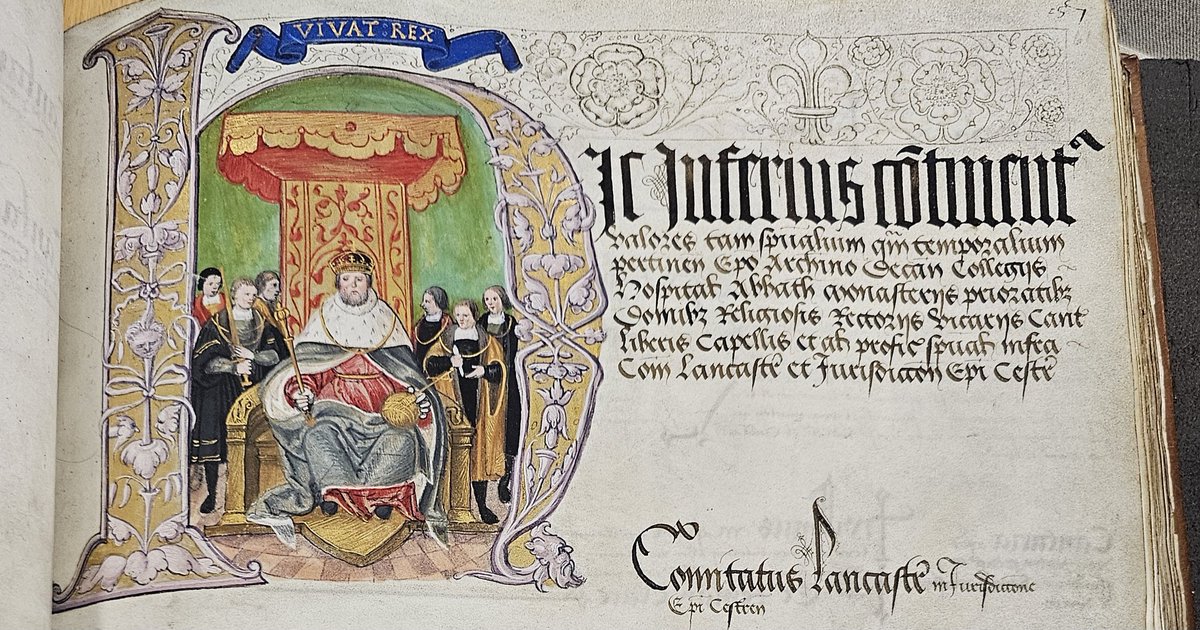 VIVAT REX
Hic Inferius cōtinent
valores tam spūalium qm̄ temporalium
pertinen Epo Archino Decan Collegijs
Hospital Abbath Monasterijs prioratibȝ
Domibȝ Religiosis Rectorijs Vicarijs Cant
Liberis Capellis et at profic spual infra
Com Lancastr̄ et Jurisdiccon Epi Cestr̄
Comitatus Lancastr̄ in Jurisdiccone
Epi Cestren